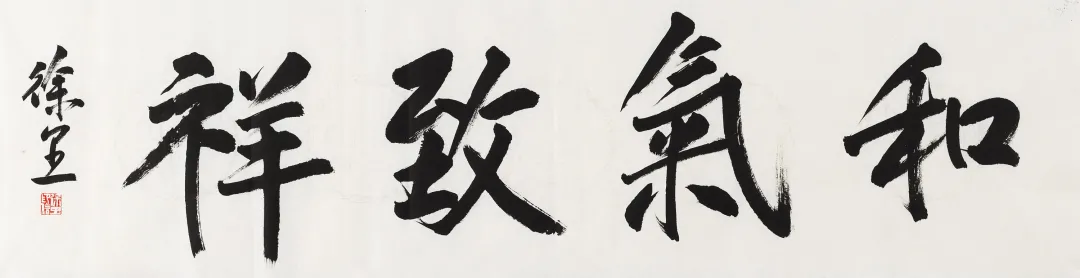 和氣致祥
徐里